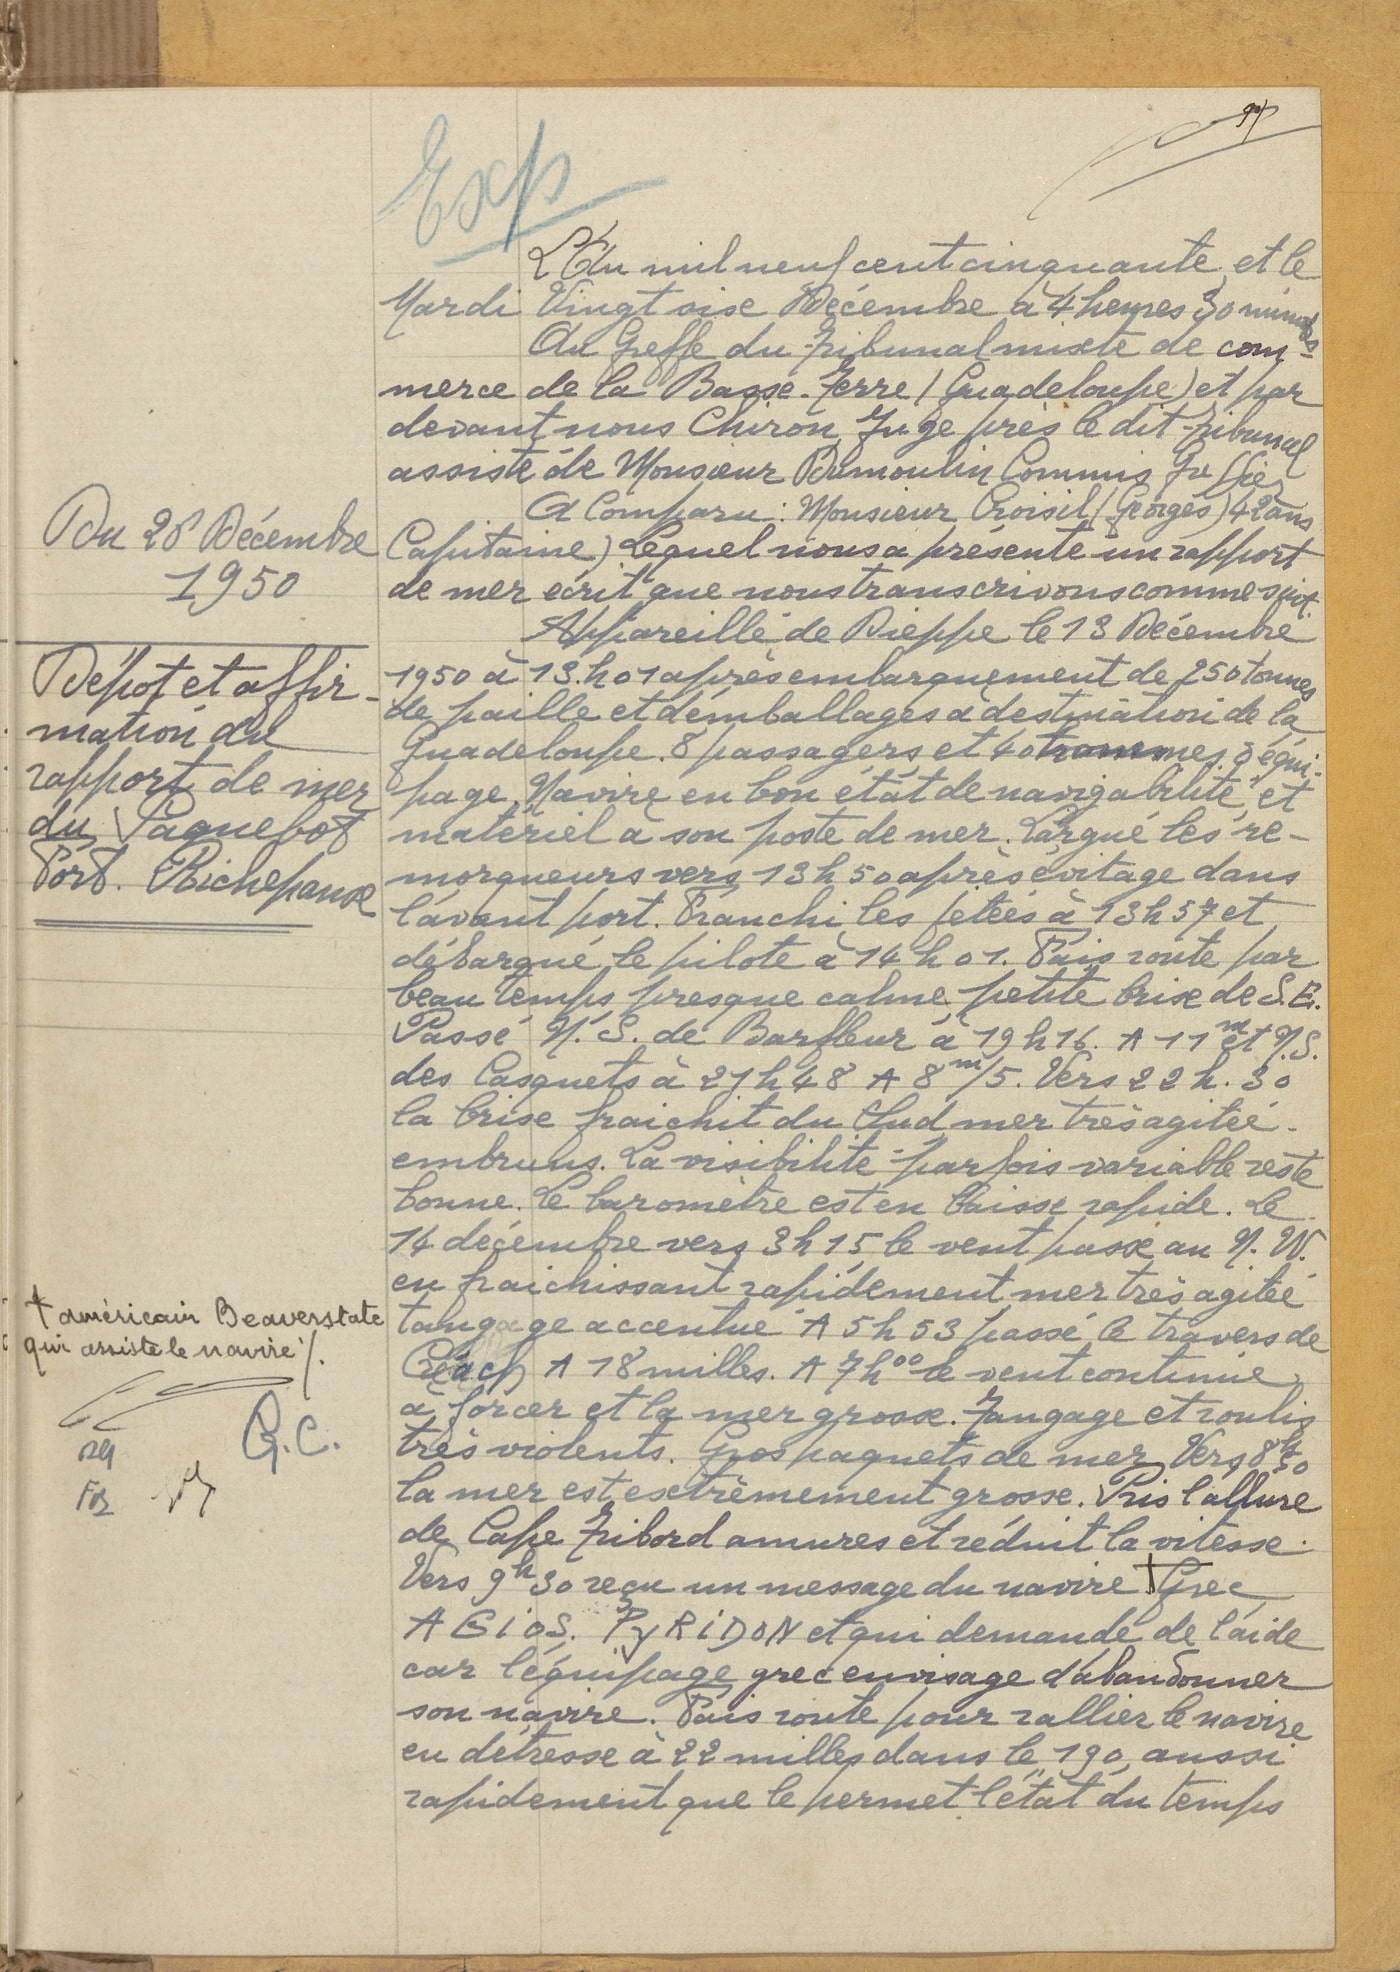 Exp
L'An mil neuf cent cinquante et le
Mardi Vingt six Décembre à 4 heures 30 minutes
Au Greffe du Tribunal mixte de com-
merce de la Basse-Terre (Guadeloupe) et par
devant nous Chiron, Juge près le dit Tribunal
assisté de Monsieur Dumoulin Commis Greffier
A Comparu : Monsieur Croisil (Georges) 42 ans
Capitaine) Lequel nous a présenté un rapport
de mer écrit que nous transcrivons comme suit.
Appareillé de Dieppe le 13 Décembre
1950 à 13.h 01 après embarquement de 250 tonnes
de paille et d'emballages à destination de la
Guadeloupe. 8 passagers et 40 hommes d'équi-
page. Navire en bon état de navigabilité et
matériel à son poste de mer. Largué les re-
morqueurs vers 13 h 50 après évitage dans
l'avant port. Franchi les jetées à 13 h 57 et
débarqué le pilote à 14 h 01. Fais route par
beau temps presque calme petite brise de S.E.
Passé N.S. de Barfleur à 19 h 16. A 11 m et N.S.
des Casquets à 21 h 48 A 8 m/5. Vers 22 h. 30
la brise fraichit du Sud mer très agitée.
embruns. La visibilité parfois variable reste
bonne. Le baromètre est en baisse rapide. Le
14 décembre vers 3 h 15 le vent passe au N.W.
en fraichissant rapidement mer très agitée
tangage accentué A 5 h 53 passé le travers de
Créach A 18 milles. A 7 h 00 le vent continue
à forcer et la mer grosse. Tangage et roulis
très violents. Gros paquets de mer. Vers 8 h 30
la mer est extrêmement grosse. Pris l'allure
de Cape Tribord amures et réduit la vitesse.
Vers 9 h 30 reçu un message du navire † Grec
AGIOS. SPyRiDON et qui demande de l'aide
car l'équipage grec envisage d'abandonner
son navire. Fais route pour rallier le navire
en détresse à 22 milles dans le 190 aussi
rapidement que le permet l'état du temps
Du 26 Décembre
1950
Dépôt et affir-
mation du
rapport de mer
du Paquebot
Fort. Richepanse
† américain Beaverstate
qui assiste le navire /.
G.C.